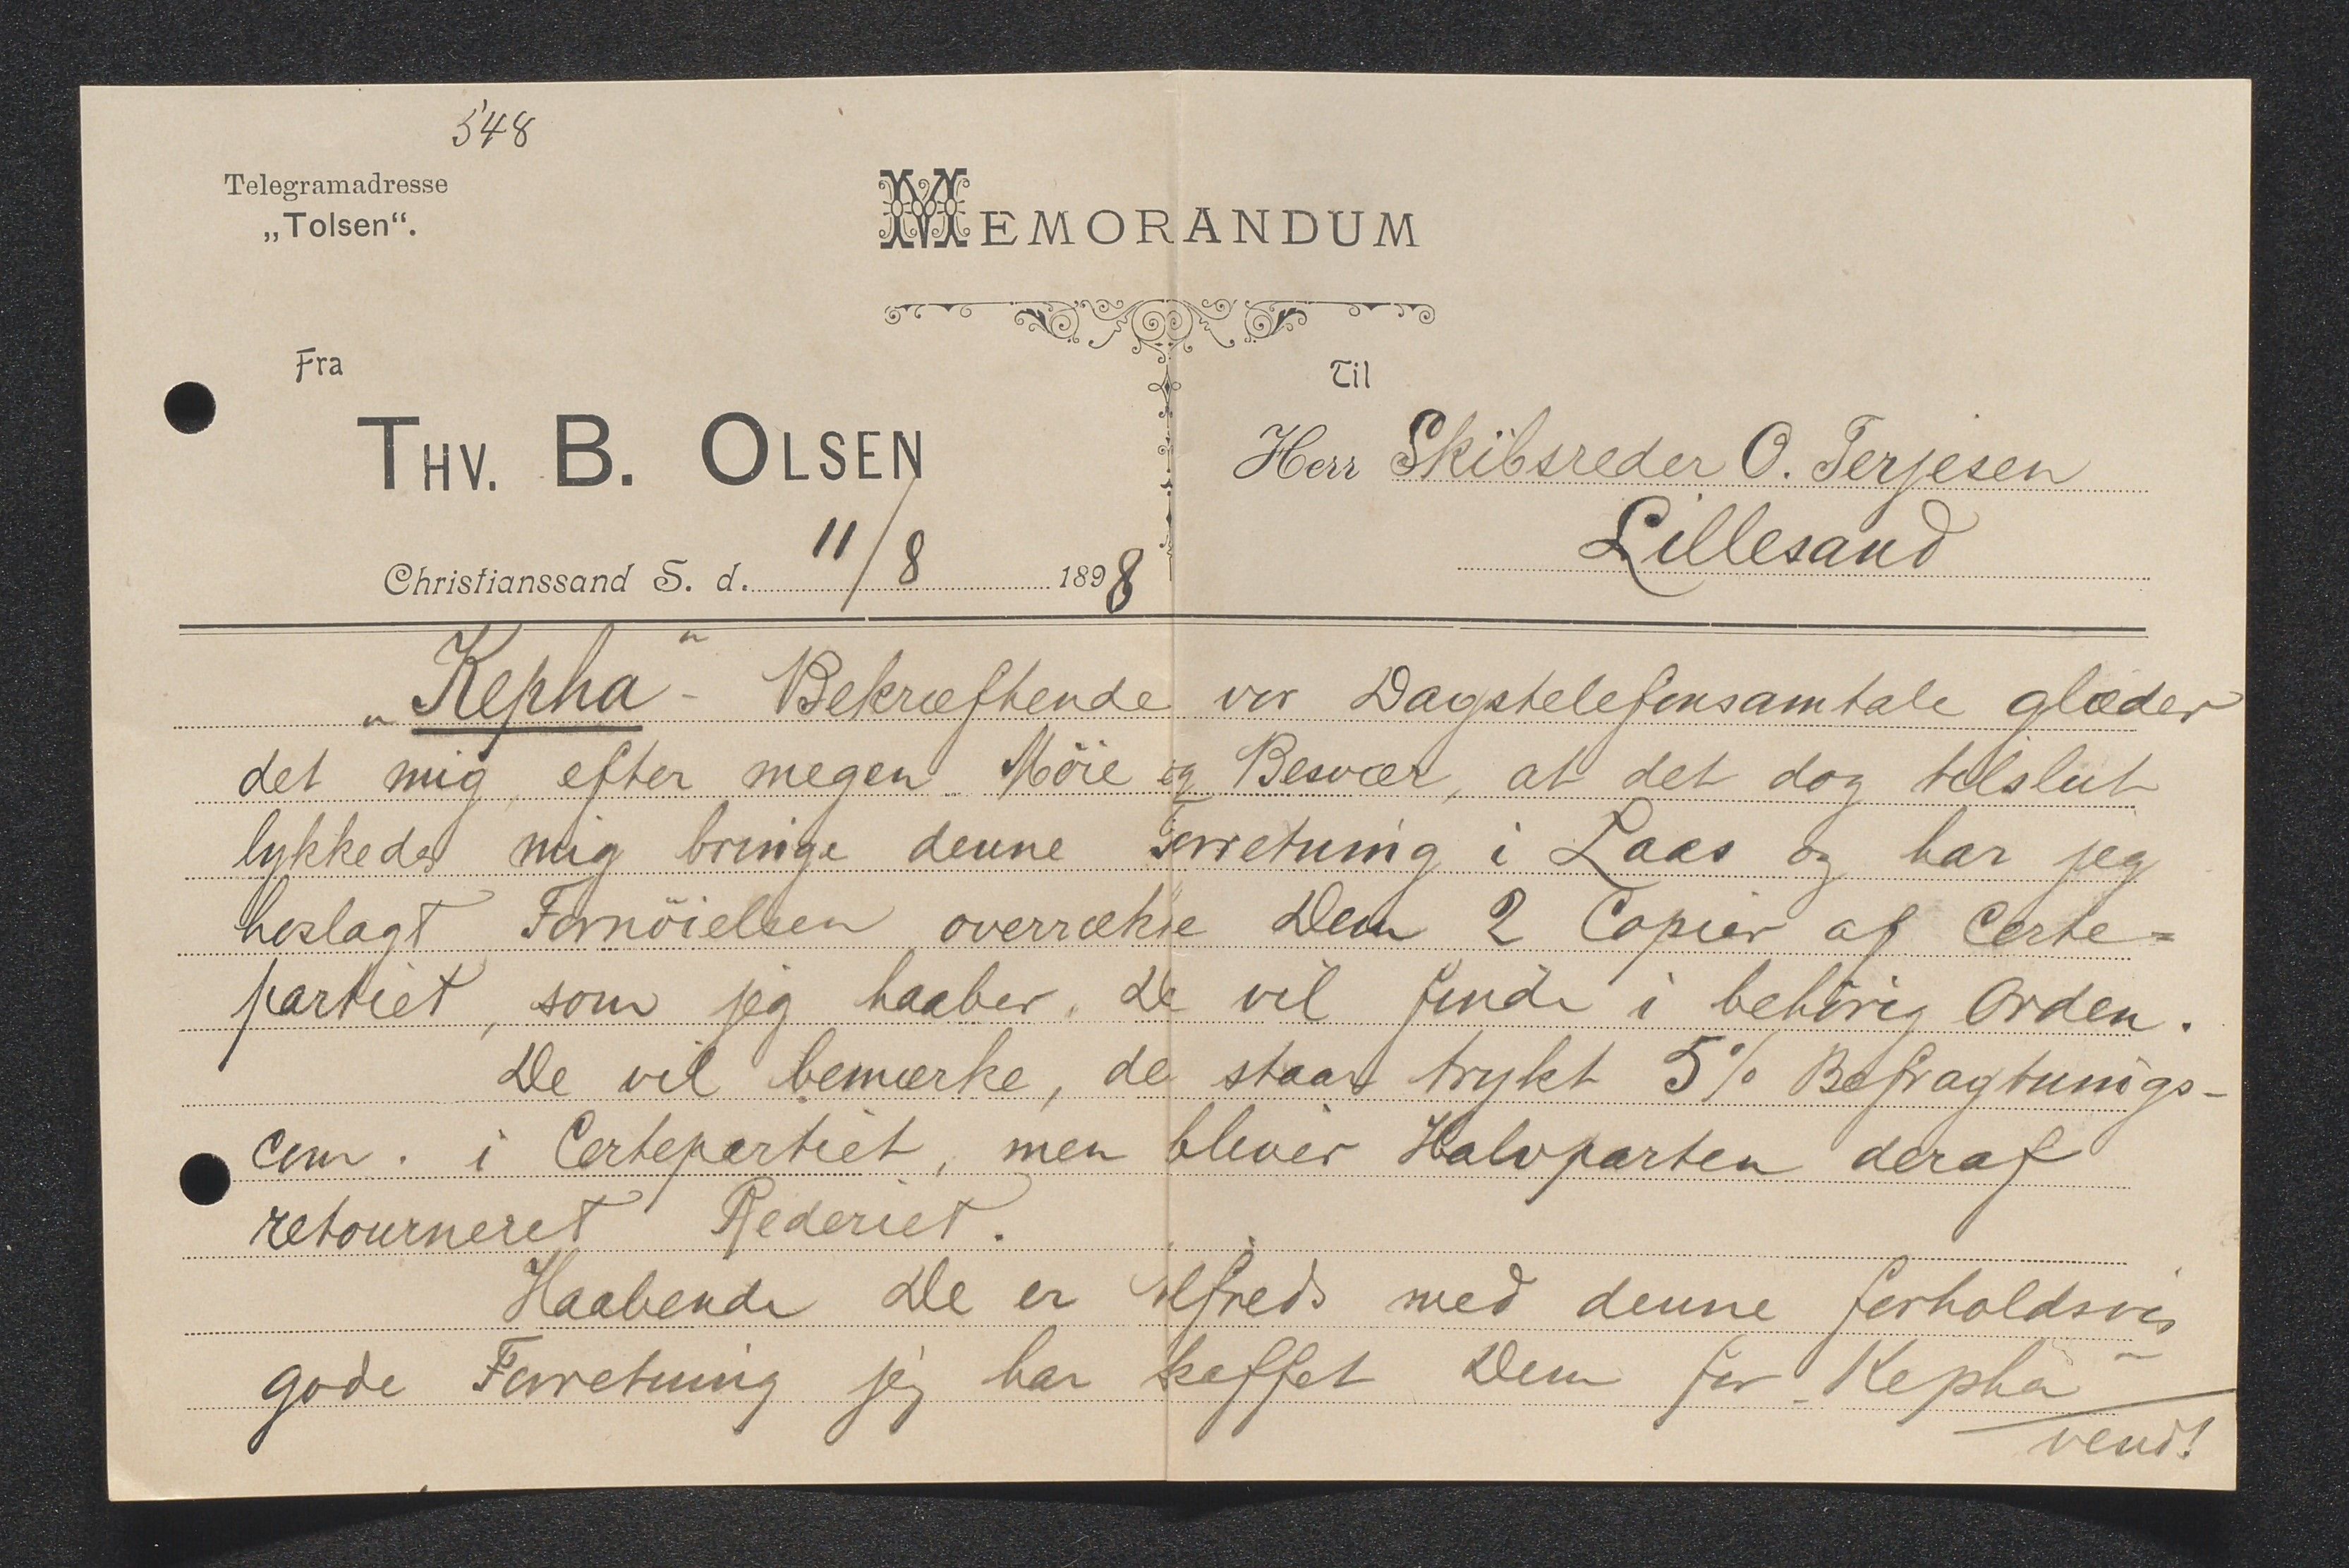 548
Telegramadresse
„Tolsen“.
MEMORANDUM
Fra
THV. B. OLSEN
Christianssand S. d. 11/8 1898
Til
Herr Skibsreder O. Terjesen
Lillesand
„Kepha“ - Bekræftende vor Dagstelefonsamtale glæder
det mig, efter megen Möie og Besvær, at det dog tilslut
lykkedes mig bringe denne Forretning i Laas og har jeg
hoslagt Fornöielsen overrække Dem 2 Copier af Certe=
partiet, som jeg haaber, De vil finde i behörig Orden.
De vil bemærke, de staar trykt 5% Befragtnings-
com. i Certepartiet, men bliver Halvparten deraf
retourneret Rederiet.
Haabende De er tilfreds med denne forholdsvis
gode Forretning jeg har skaffet Dem for „Kepha“
vend!